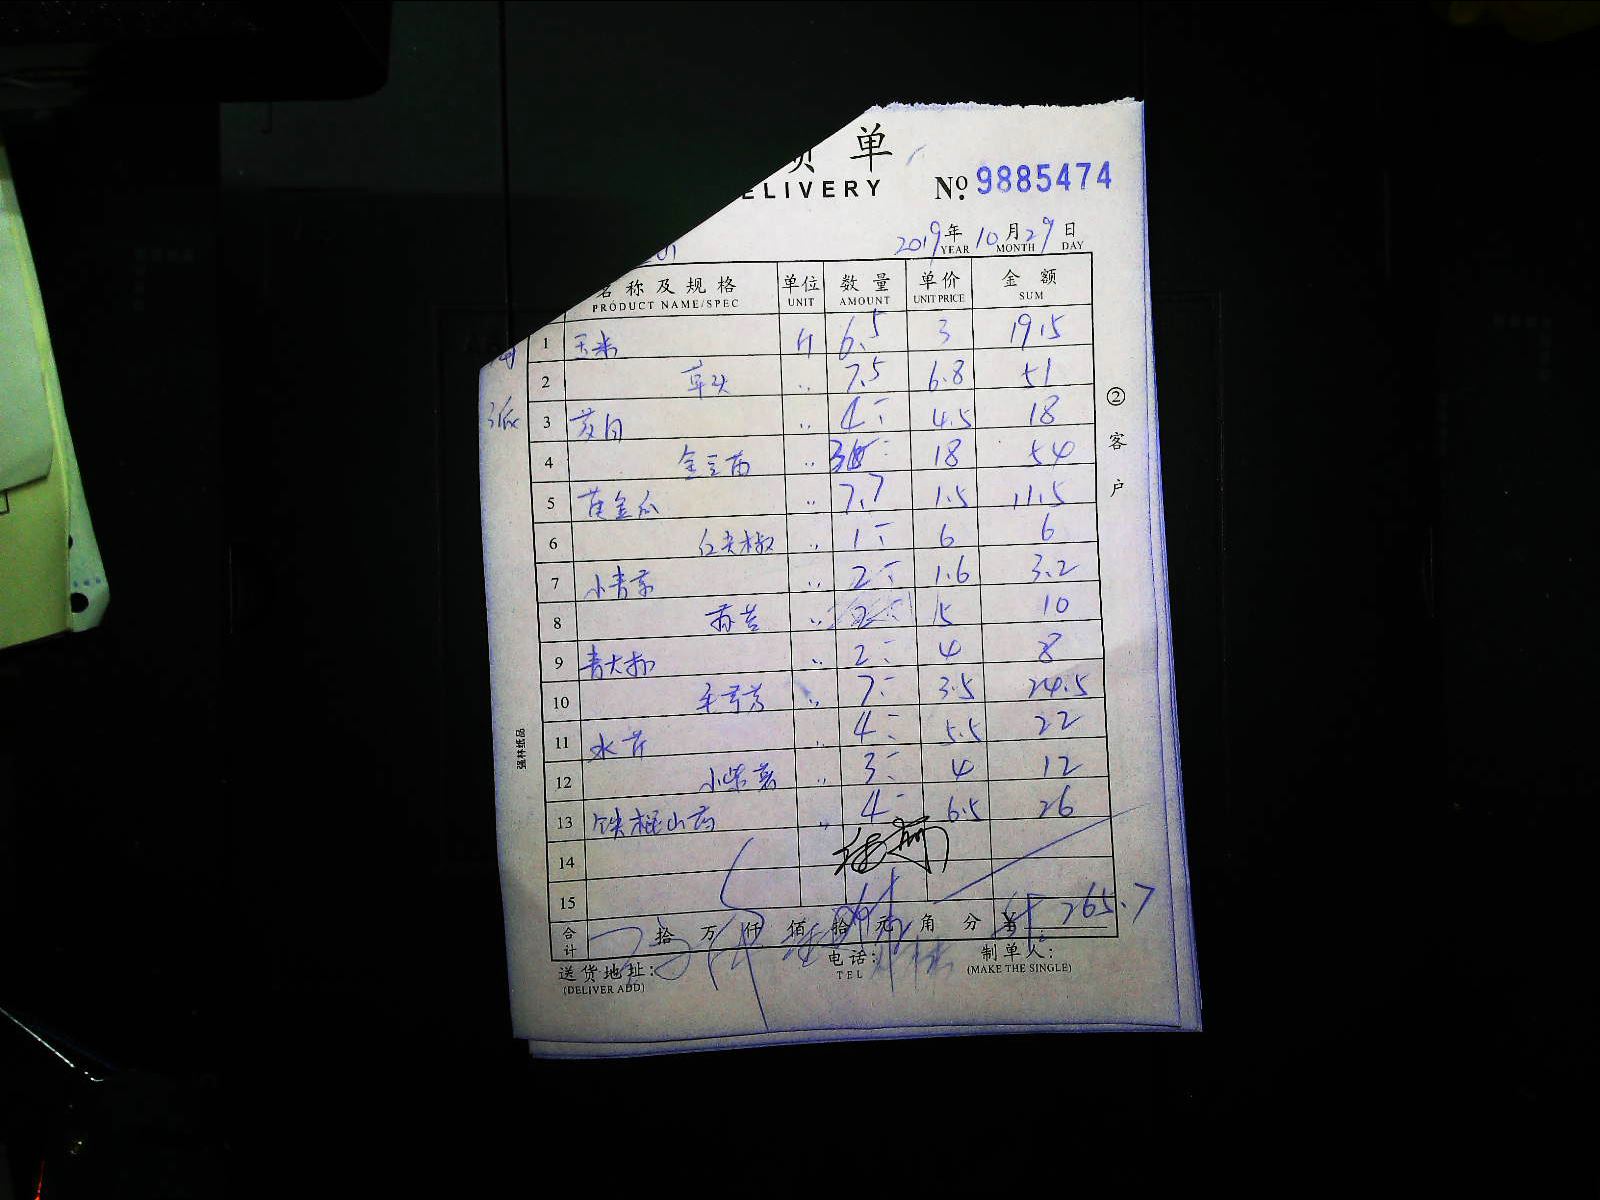 单
ELIVERY
№ 9885474
2019年 10月29日
YEAR MONTH DAY
名称及规格 单位 数量 单价 金额
PRODUCT NAME/SPEC UNIT AMOUNT UNIT PRICE SUM
1 玉米 斤 6.5 3 19.5
2 草头 〃 7.5 6.8 51
3 茭白 〃 4 4.5 18
4 金豆苗 〃 3 18 54
5 黄金瓜 〃 7.7 1.5 11.5
6 红尖椒 〃 1 6 6
7 小青菜 〃 2 1.6 3.2
8 〃 2 5 10
9 青大椒 〃 2 4 8
10 毛芋艿 〃 7 3.5 24.5
11 水芹 〃 4 5.5 22
12 〃 3 4 12
13 铁棍山药 〃 4 6.5 26
14
15
合计 拾 万 仟 佰 拾 元 角 分 ¥ 265.7
送货地址: 电话: 制单人:
(DELIVER ADD) TEL (MAKE THE SINGLE)
②客户
强林纸品